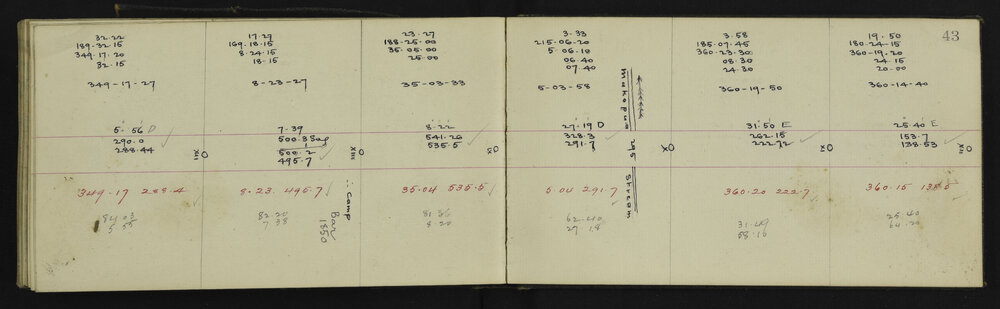 32.22
189.32.15
349.17.20
32.15
349-17-27
5.56 D
290.0
288.44
349.17 288.4
84 03
5 55
17.27
169.18.15
8.24.15
18.15
8-23-27
7.39
500.3 Sag
1
500.2
495.7
8.23. 495.7
82 20
7 38
∴ Camp
Bar
1850
23.27
188-25-00
35.05.00
25.00
35-03-33
8.22
541.26
535.5
35.04 535.5
8 20
3.33
215-06-20
5.06.10
06.40
07.40
5-03-58
27.19 D
328.3
291.7
5.04 291.7
62.40
27 18
Makopua
295
Stream
3.58
185.07.45
360-23-30
08.30
24.30
360-19-50
31.50 E
262.15
222.72
360.20 222.7
31.49
58.10
19.50
180-24-15
360-19-20
24.15
20-00
360-14-40
25.40 E
153.7
138.53
360.15
25.40
64.20
43